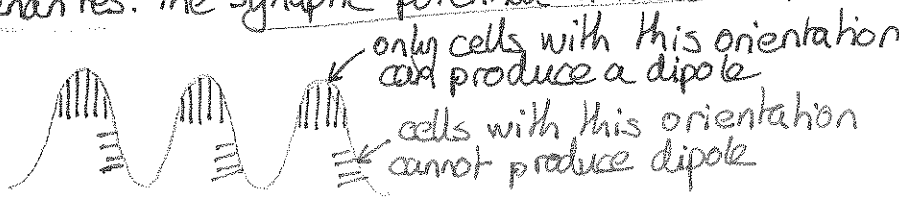 The synaptic
only cells with this orientation
can produce a dipole
cells with this orientation
cannot produce dipole